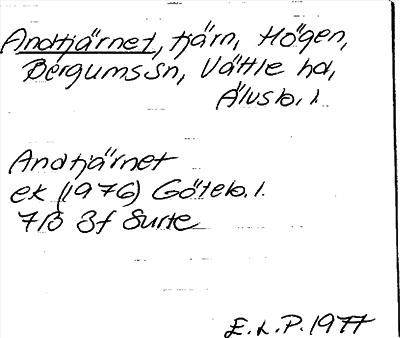 Andtjärnet, tjärn, Högen,
Bergums sn, Vättle hd,
Älvsb. l.
Andtjärnet
ek (1976) Göteb. l.
7B 3f Surte
E.L.P. 1977